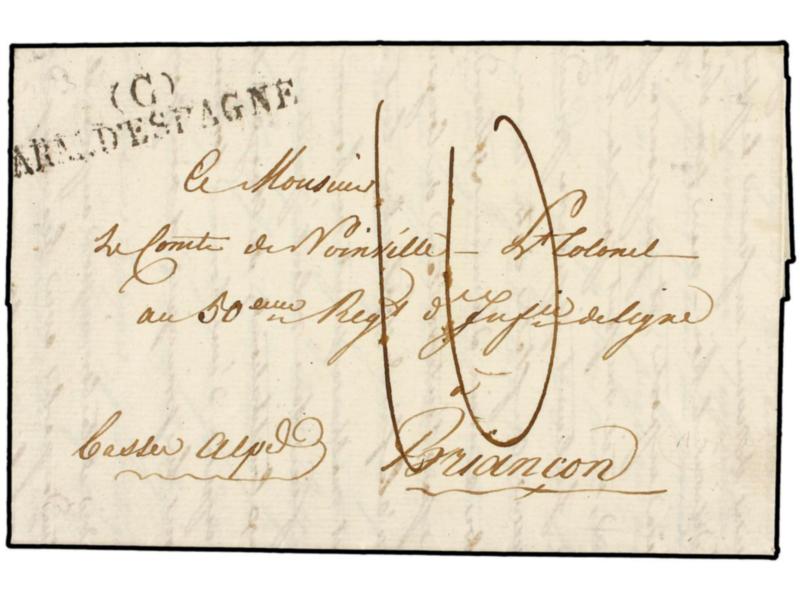 (C)
ARM. D'ESPAGNE
10
A Monsieur
Le Comte de Noinville – Lt Colonel
au 50eme Regt d'Infie de ligne
à
Basses Alpes Briançon